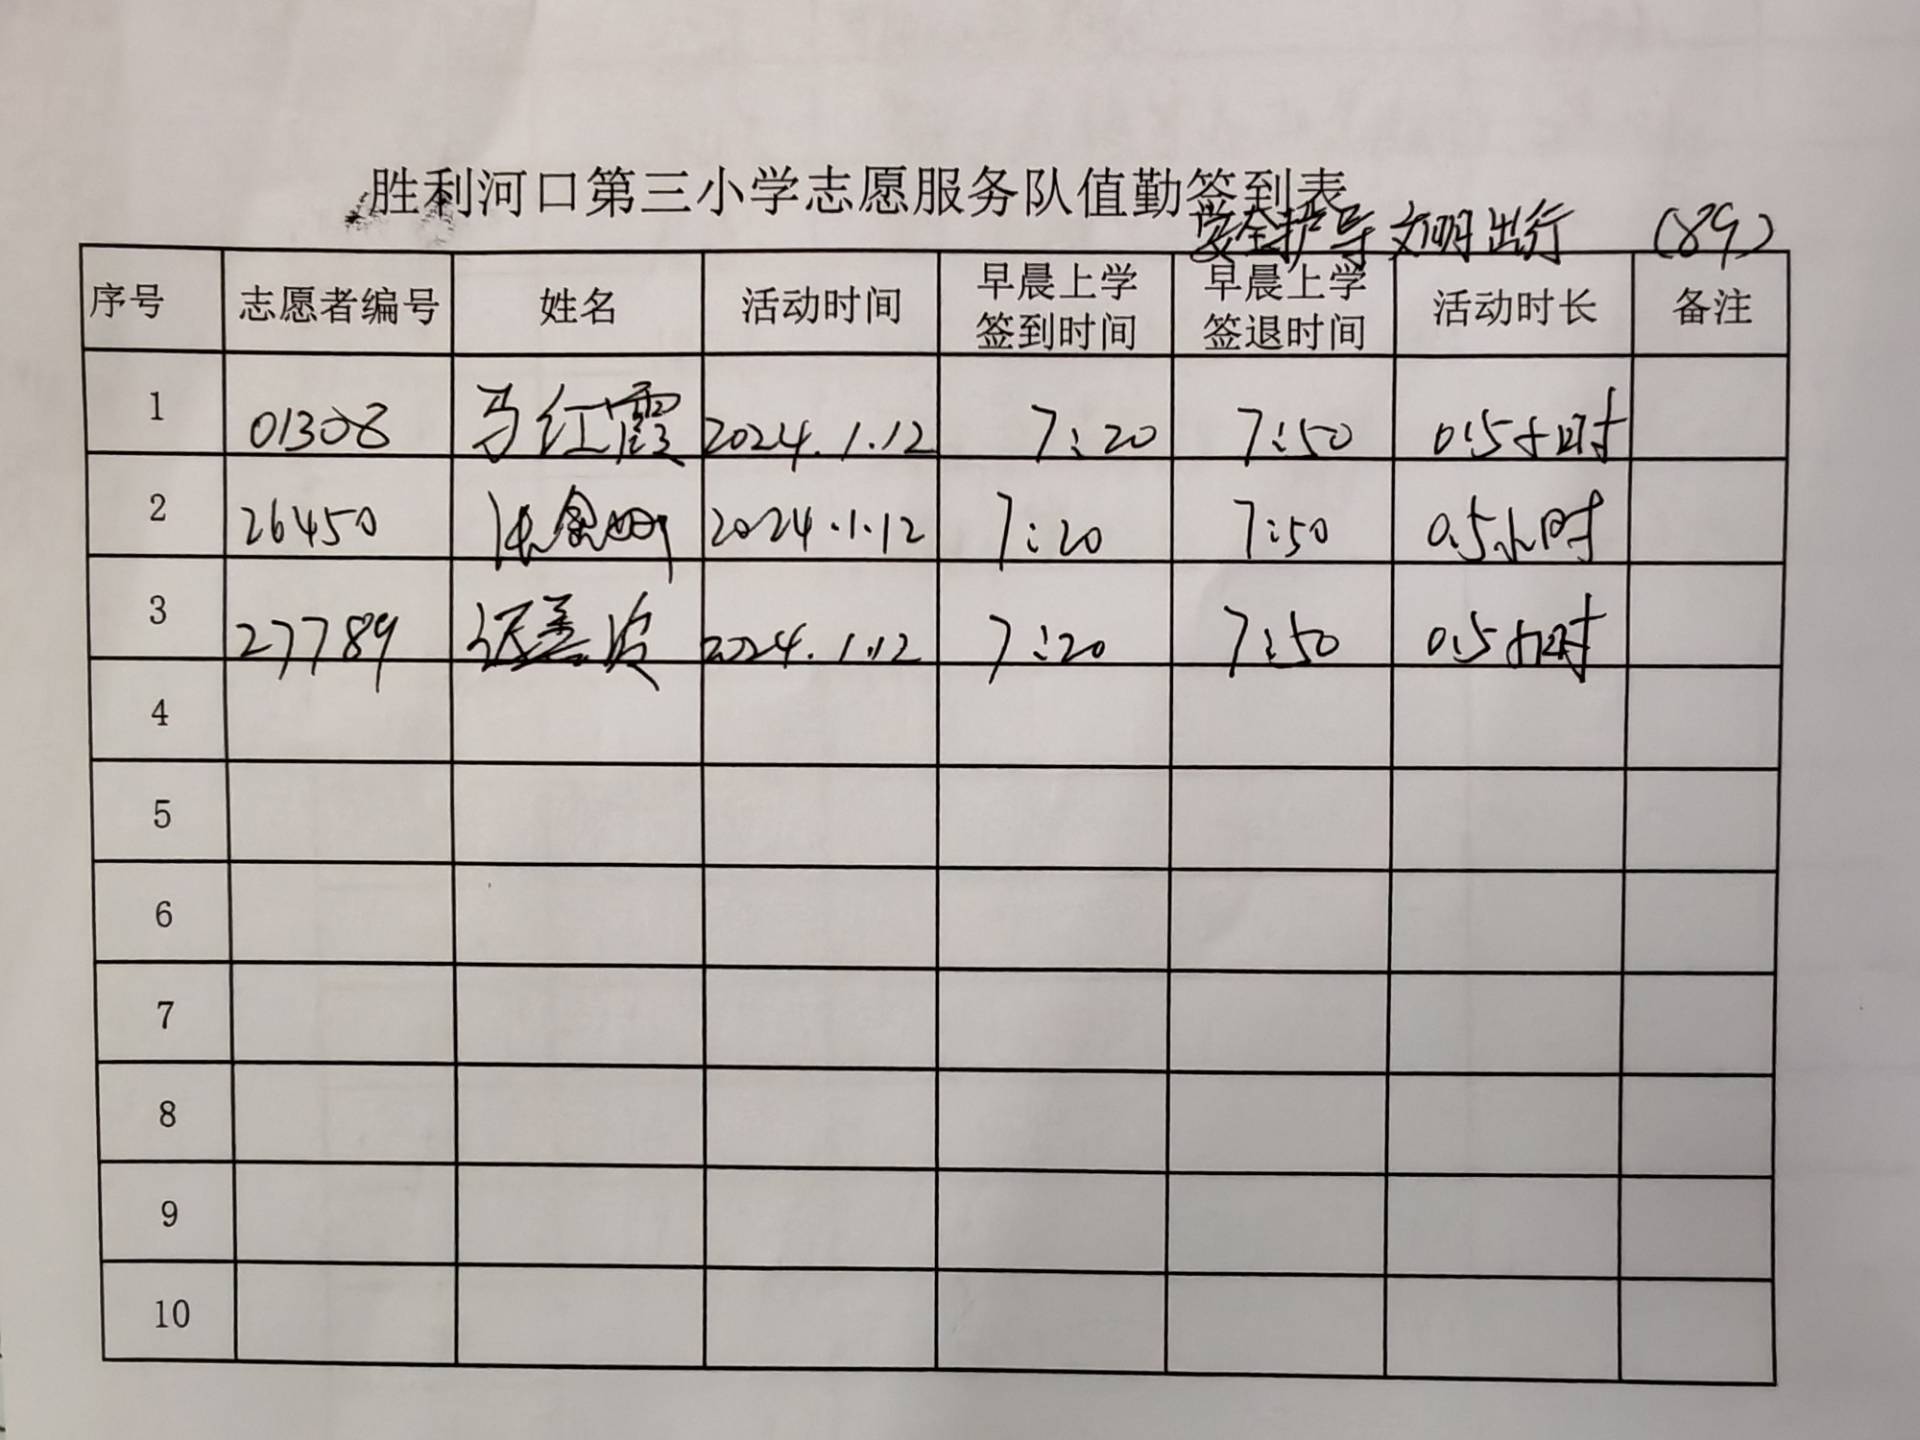 胜利河口第三小学志愿服务队值勤签到表
安全护导 文明出行 (89)
序号 志愿者编号 姓名 活动时间 早晨上学签到时间 早晨上学签退时间 活动时长 备注
1 01308 马红霞 2024.1.12 7:20 7:50 0.5小时
2 26450 2024.1.12 7:20 7:50 0.5小时
3 27789 2024.1.12 7:20 7:50 0.5小时
4
5
6
7
8
9
10